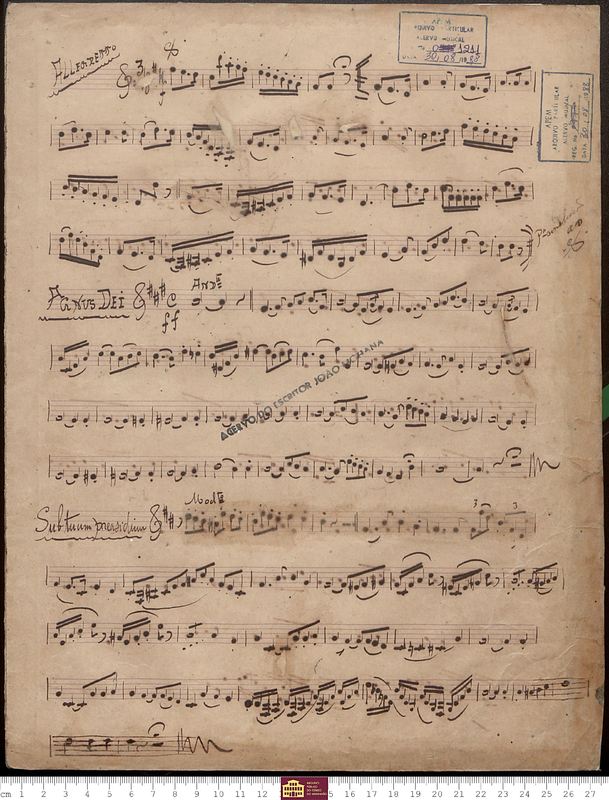 APEM
ARQUIVO PARTICULAR
ACERVO MUSICAL
1211
DATA 30, 08, 1982
ALLEGRETTO
3
f
APEM
ARQUIVO PARTICULAR
ACERVO MUSICAL
REG.
DATA
AGNUS DEI
C
ANDE
ff
ACERVO DO ESCRITOR JOÃO MOHANA
Sub tuum praesidium
ModtE
3
3
cm 1 2 3 4 5 6 7 8 9 10 11 12 15 16 17 18 19 20 21 22 23 24 25 26 27
ARQUIVO
PÚBLICO
DO ESTADO
DO MARANHÃO